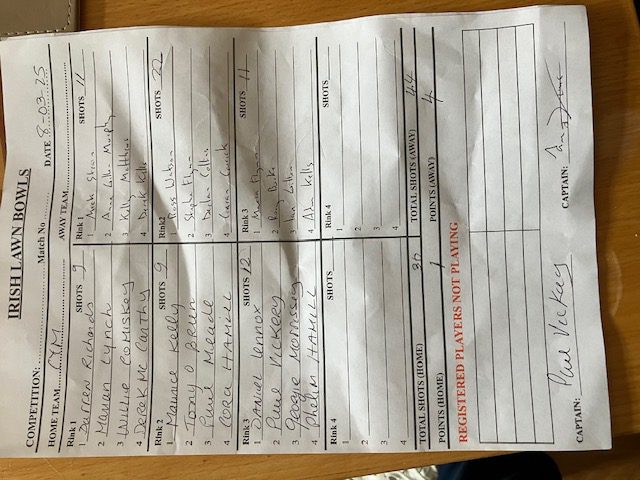 IRISH LAWN BOWLS
COMPETITION: Match No DATE 8-03-25
HOME TEAM CYM AWAY TEAM
Rink 1 SHOTS 9 Rink 1 SHOTS 11
1 Darren Richards 1 Mark
2 Marian Lynch 2 Anne Murphy
3 Willie COMISKEY 3 Kelly Matthews
4 Derek Mc Carthy 4 Derek Kells
Rink2 SHOTS 9 Rink2 SHOTS 22
1 Maurice Kelly 1 Ross Watson
2 Tony O Brien 2 Flynn
3 Paul Meade 3 Collins
4 HAMILL 4 Ciaran
Rink 3 SHOTS 12 Rink 3 SHOTS 11
1 DANIEL Lennox 1
2 Paul VICKERY 2
3 George Morrissey 3
4 Phelim HAMILL 4 Alan Kells
Rink 4 Rink 4 SHOTS
1 1
2 2
3 3
4 4
TOTAL SHOTS (HOME) 30 TOTAL SHOTS (AWAY) 44
POINTS (HOME) 1 POINTS (AWAY) 4
REGISTERED PLAYERS NOT PLAYING
CAPTAIN: Paul Vickery CAPTAIN: